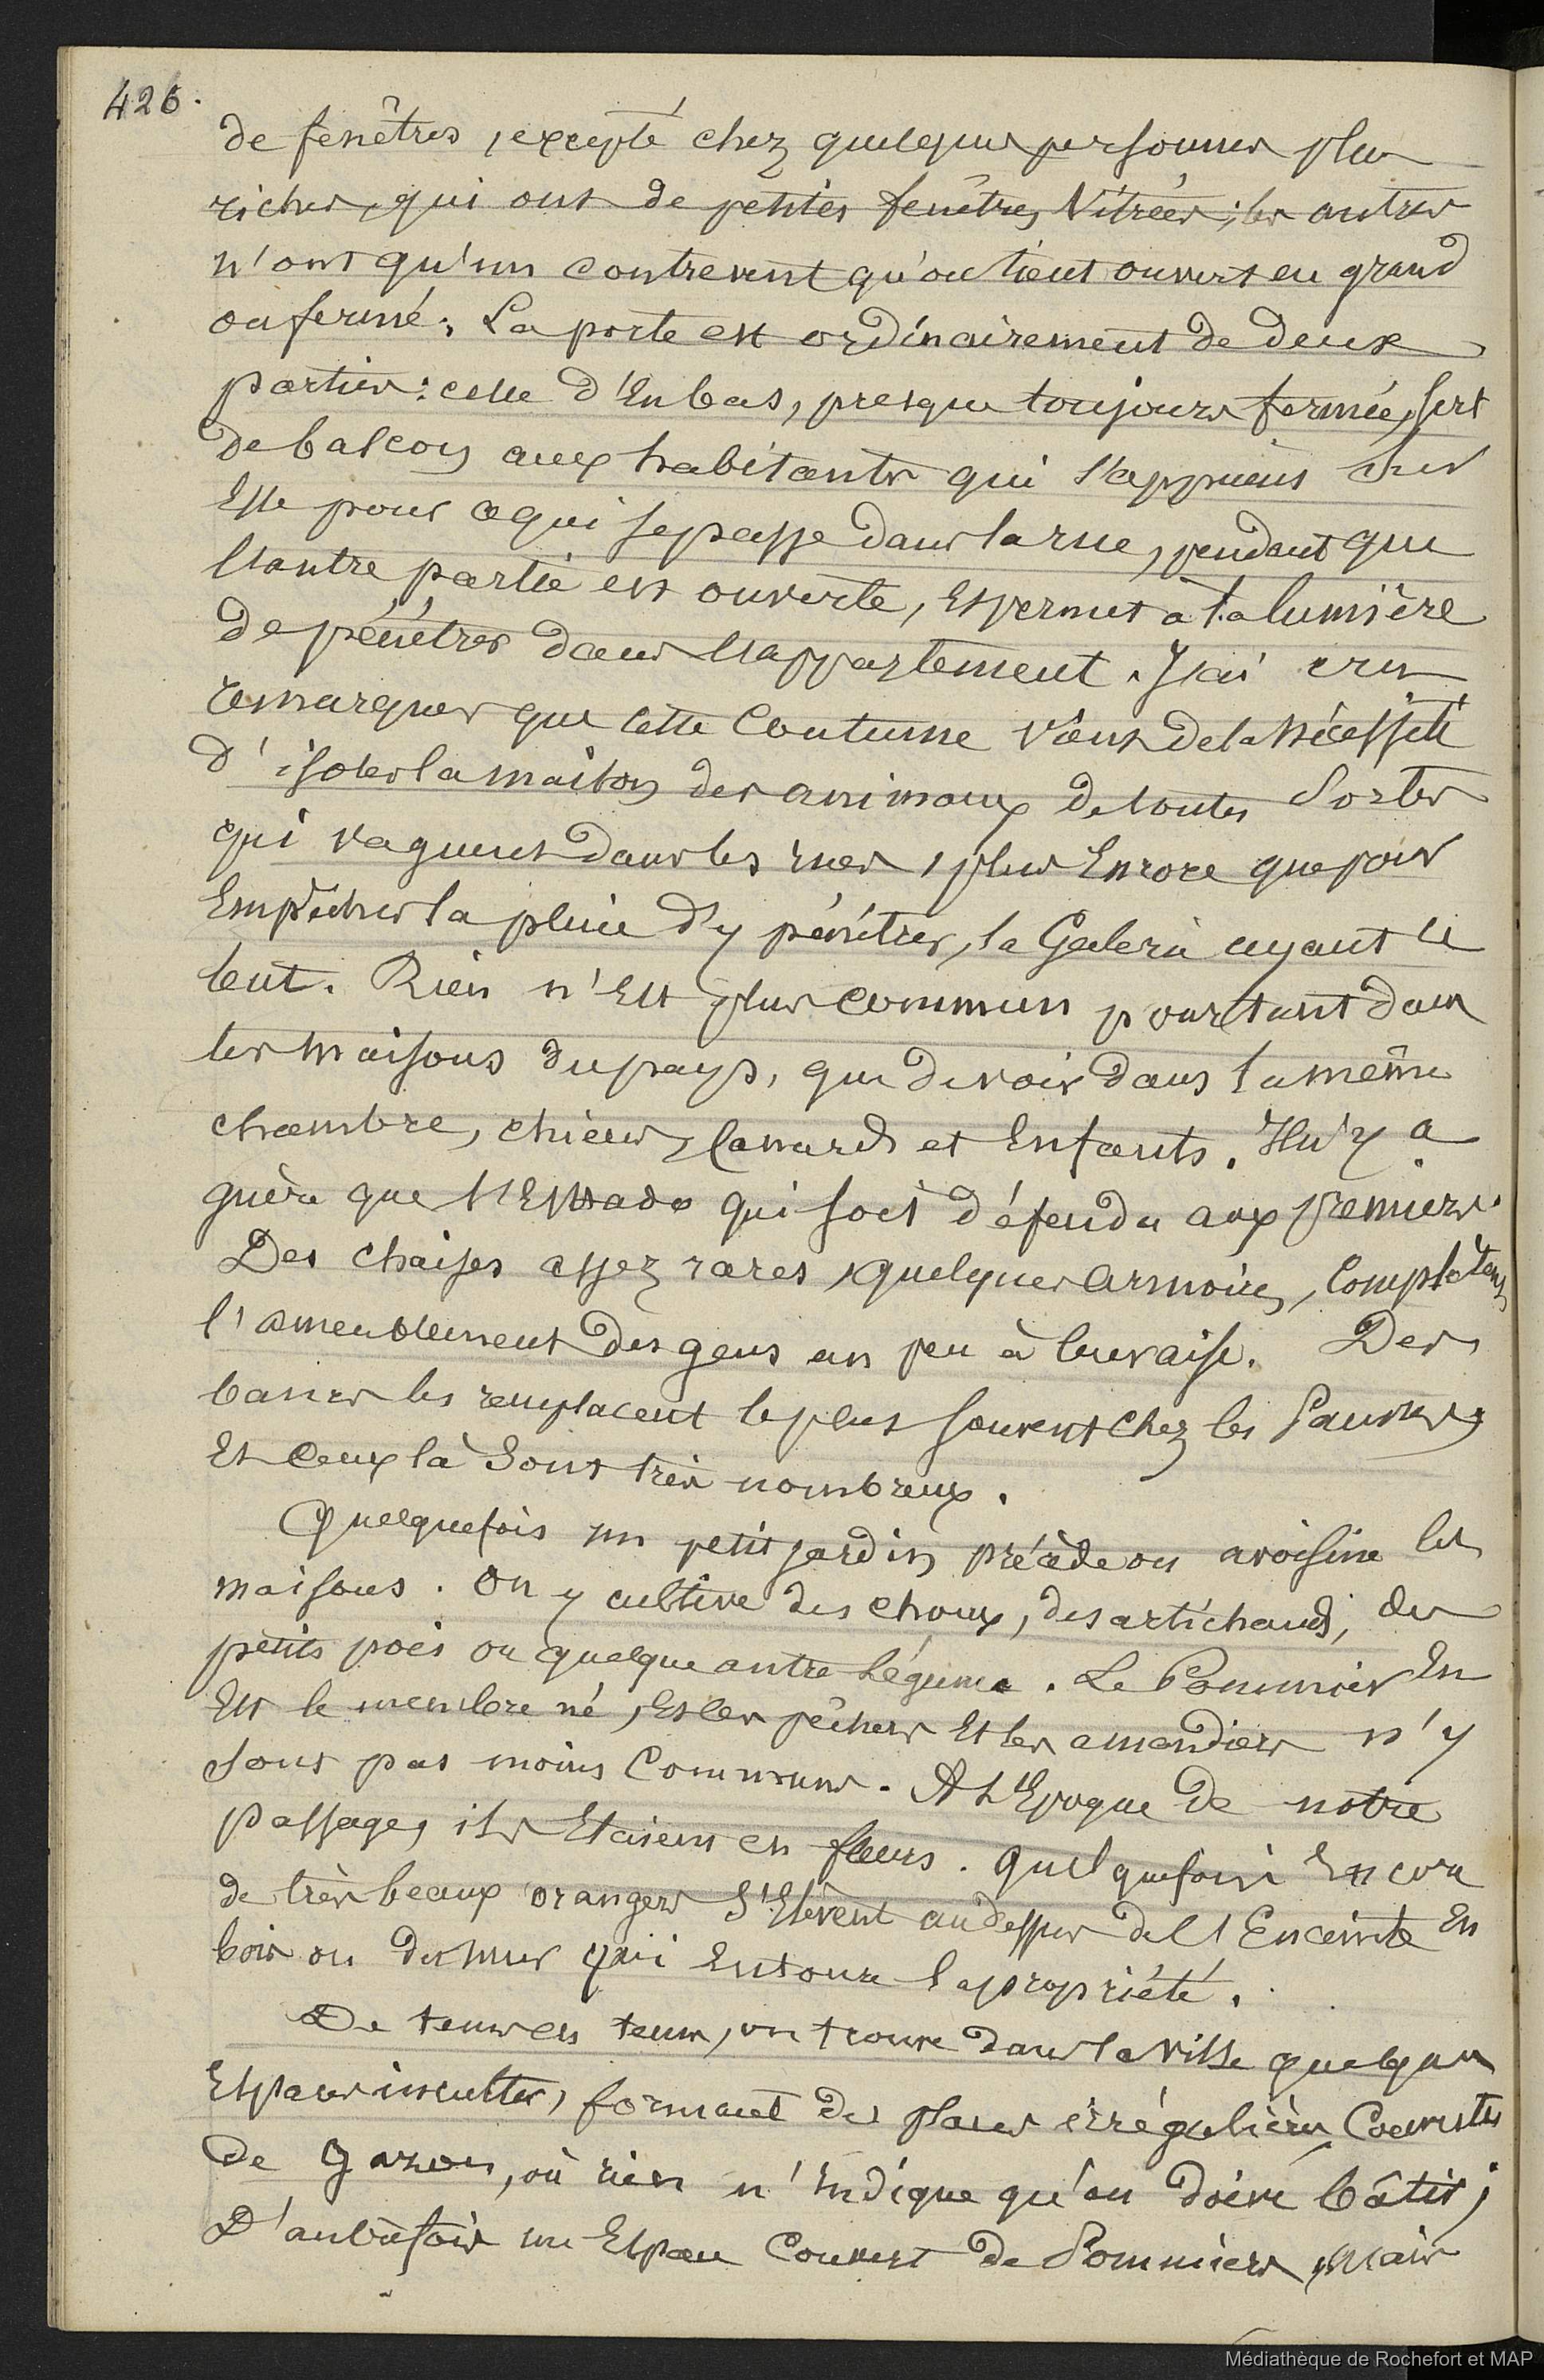 426.
de fenêtres, excepté chez quelques personnes plus
riches, qui ont de petites fenêtres vitrées; les autres
n'ont qu'un contrevent qu'on tient ouvert en grand
ou fermé. La porte est ordinairement de deux
parties: celle d'en bas, presque toujours fermée, sert
de balcon aux habitants qui s'appuient sur
Elle pour ce qui se passe dans la rue, pendant que
l'autre partie est ouverte, Et permet à la lumière
de pénétrer dans l'appartement. J'ai cru
remarquer que cette Coutume vient de la nécessité
d'isoler la maison des animaux de toutes Sortes
qui vaguent dans les rues, plus Encore que pour
Empêcher la pluie d'y pénétrer, la Galerie ayant ce
but. Rien n'Est plus commun pourtant dans
les maisons du pays, que de voir dans la même
chambre, chiens, Canards et Enfants. Il n'y a
guère que l'Estrade qui soit défendu aux premiers.
Des chaises assez rares, quelques armoires, Complètent
l'ameublement des gens un peu à leur aise. Des
bancs les remplacent le plus souvent chez les Pauvres,
Et Ceux là Sont très nombreux.
Quelquefois un petit jardin précède ou avoisine les
maisons. On y cultive des choux, des artichauds, des
petits pois ou quelque autre Légume. Le Pommier En
Est le membre né, Et les pêchers Et les amandiers n'y
sont pas moins Communs. A L'Epoque de notre
passage, ils Etaient en fleurs. Quelquefois Encore
de très beaux orangers S'Elèvent au dessus de l'Enceinte En
bois ou du mur qui Entoure la propriété.
De tems en tems, on trouve dans la ville quelques
Espaces incultes, formant des places irrégulières, Couvertes
de Gazon, où rien n'Indique qu'on doive bâtir;
D'autrefois un Espace Couvert de Pommiers, mais
Médiathèque de Rochefort et MAP